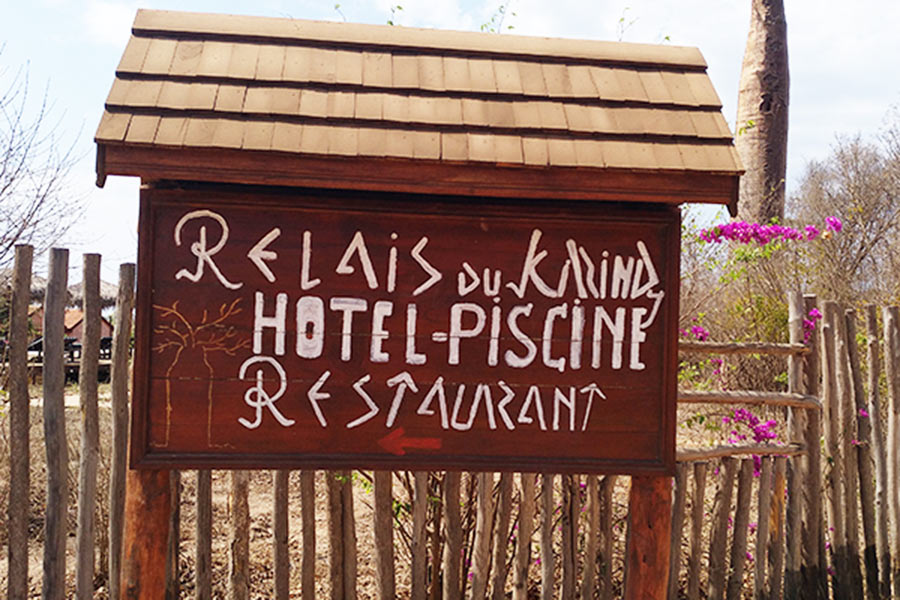 Relais du Kirindy
HOTEL-PISCINE
RESTAURANT